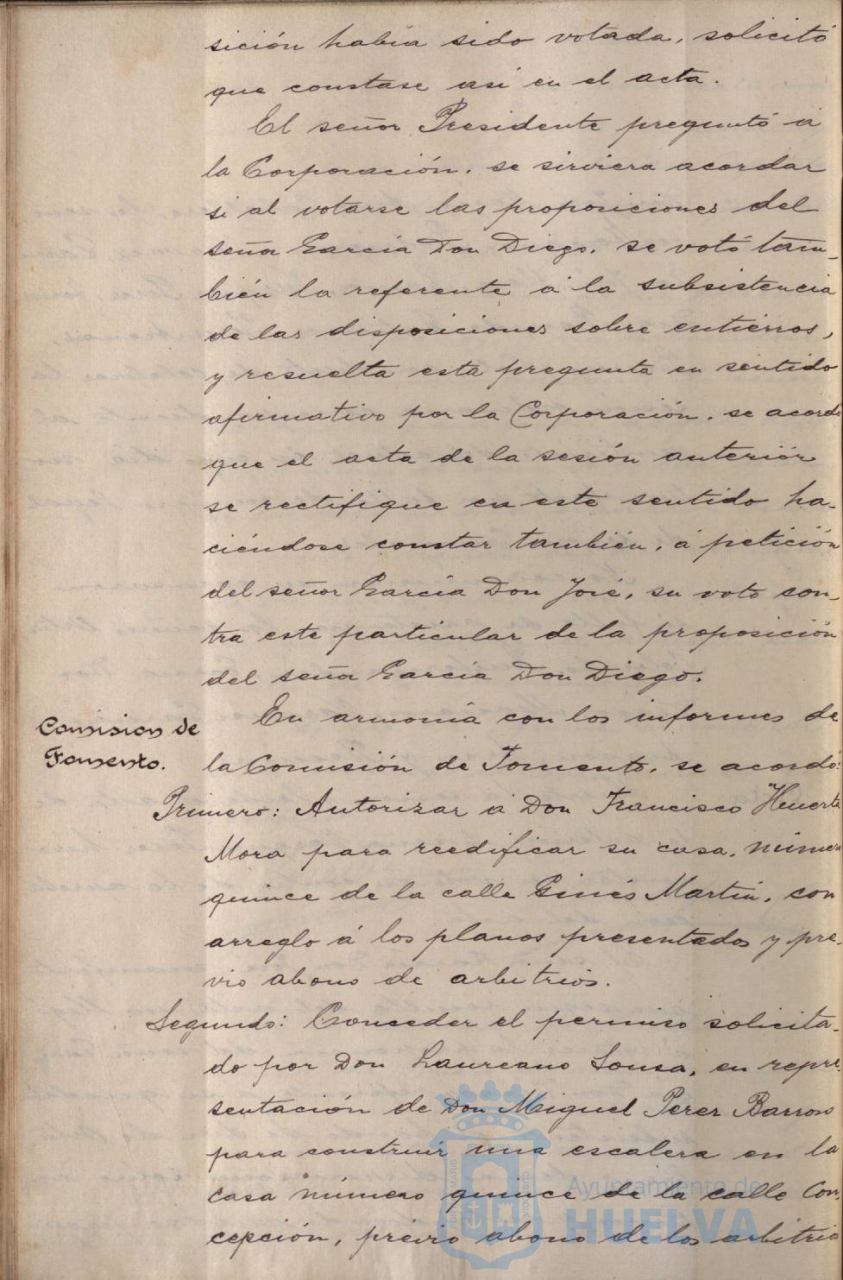 sición había sido votada, solicitó
que constase así en el acta.
El señor Presidente preguntó á
la Corporación, se sirviera acordar
si al votarse las proposiciones del
señor García Don Diego, se votó tam-
bién la referente á la subsistencia
de las disposiciones sobre entierros,
y resuelta esta pregunta en sentido
afirmativo por la Corporación, se acordó
que el acta de la sesión anterior
se rectifique en este sentido ha-
ciéndose constar también, á petición
del señor García Don José, su voto con-
tra este particular de la proposición
del señor García Don Diego.
Comision de
Fomento.
En armonía con los informes de
la Comisión de Fomento, se acordó:
Primero: Autorizar á Don Francisco Huerta
Mora para reedificar su casa, número
quince de la calle Ginés Martín, con
arreglo á los planos presentados y pre-
vio abono de arbitrios.
Segundo: Conceder el permiso solicita-
do por Don Laureano Sousa, en repre-
sentación de Don Miguel Perez Barroso
para construir una escalera en la
casa número quince de la calle Con-
cepción, previo abono de los arbitrio
Ayuntamiento de
HUELVA